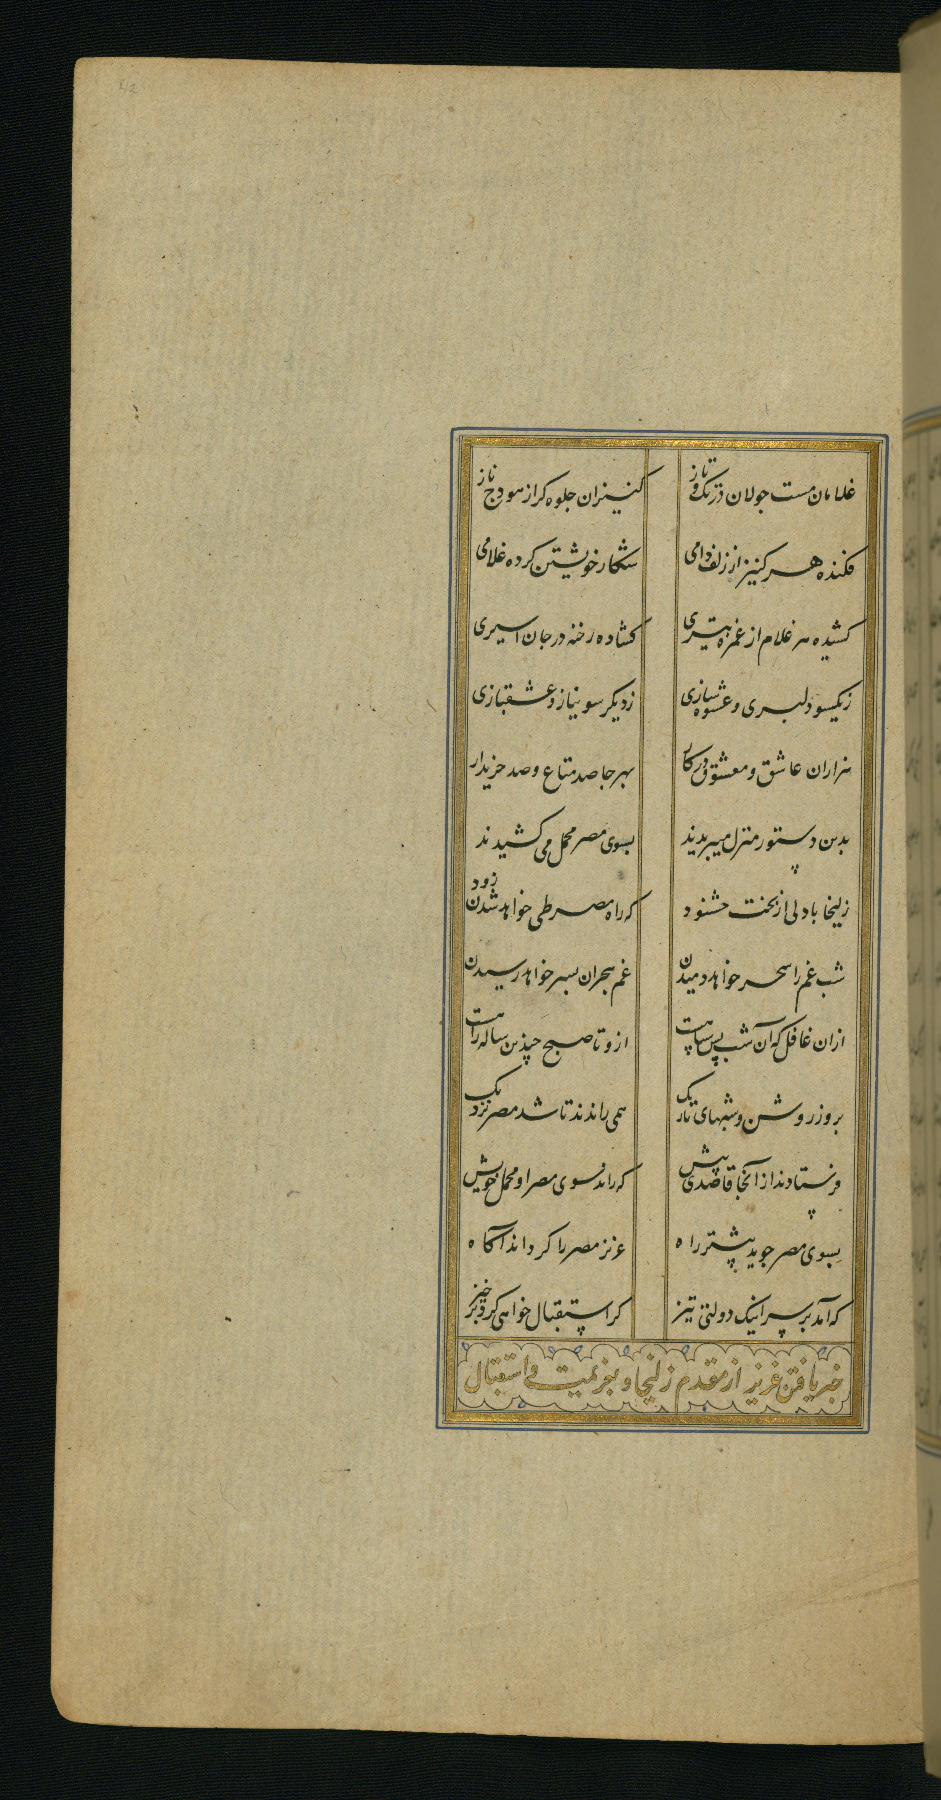 42
غلامان مست جولان در تک و تاز کنیزان جلوه گر از هودج ناز
فکنده هر کنیز از زلف دامی شکار خویشتن کرده غلامی
کشیده هر غلام از غمزه تیری کشاده رخنه در جان اسیری
ز یکسو دلبری و عشوه سازی ز دیگر سو نیاز و عشقبازی
هزاران عاشق و معشوق در کار بهر جا صد متاع و صد خریدار
بدین دستور منزل میبریدند بسوی مصر محمل می کشیدند
زلیخا با دلی از بخت خشنود که راه مصر طی خواهد شدن زود
شب غم را سحر خواهد دمیدن غم هجران بسر خواهد رسیدن
ازان غافل که آن شب بس سیاهست ازو تا صبح چندین ساله راهست
بروز روشن و شبهای تاریک همی راندند تا شد مصر نزدیک
فرستادند از آنجا قاصدی پیش که راند سوی مصر او محمل خویش
بسوی مصر جوید پیشتر راه عزیز مصر را گرداند آگاه
که آمد بر سر اینک دولتی تیز گر استقبال خواهی کرد برخیز
خبر یافتن عزیز از مقدم زلیخا و بعزیمت و استقبال